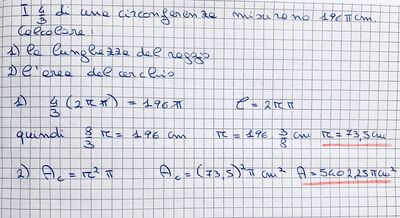 I 4/3 di una circonferenza misurano 196π cm.
Calcolare:
1) la lunghezza del raggio
2) l'area del cerchio
1) 4/3 (2rπ) = 196π C = 2rπ
quindi 8/3 r = 196 cm r = 196 3/8 cm r = 73,5 cm
2) Ac = r²π Ac = (73,5)²π cm² A = 5402,25π cm²